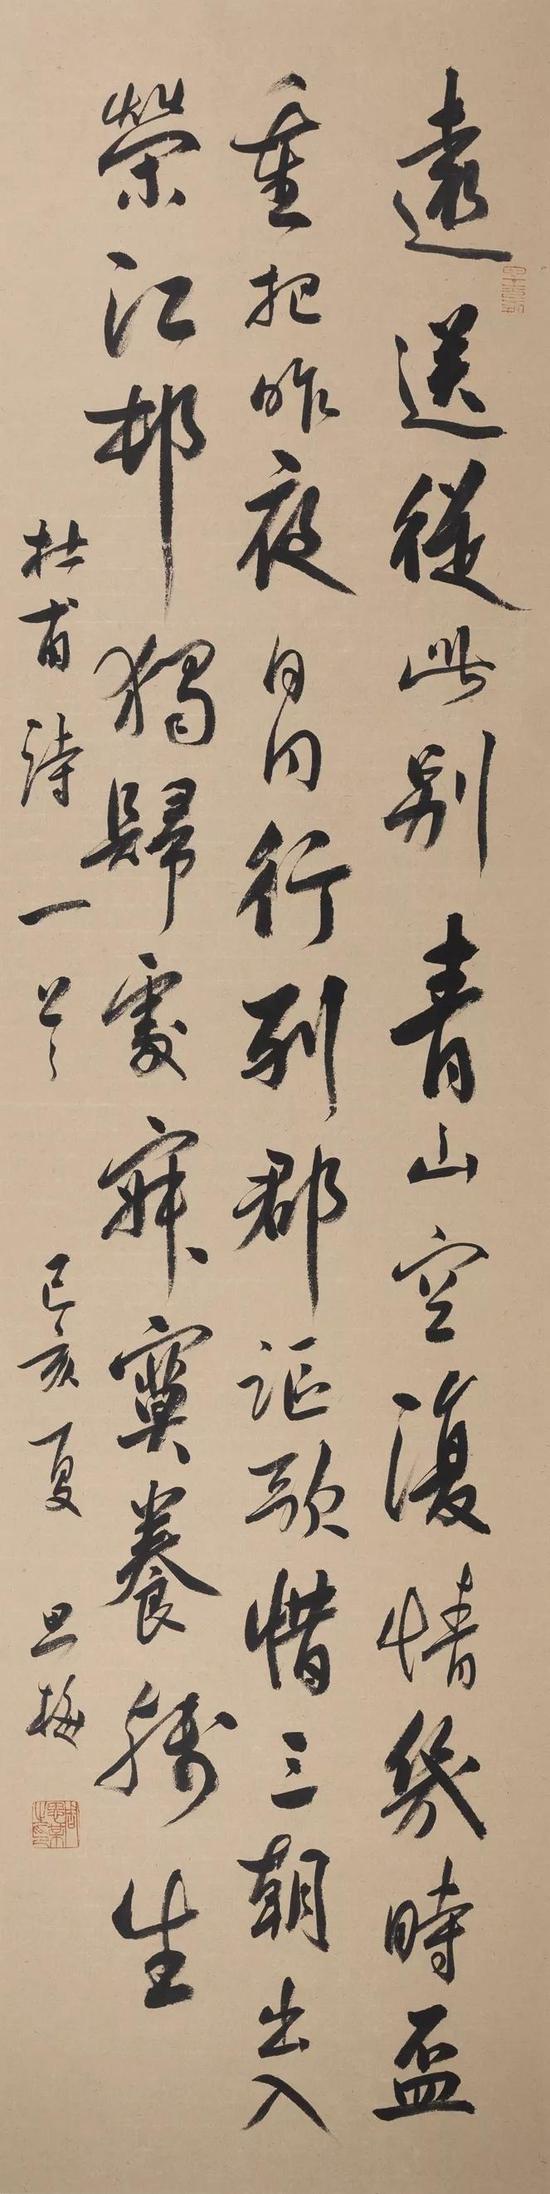 遠送從此別青山空復情幾時盃
重把昨夜月同行列郡謳歌惜三朝出入
榮江邨獨歸處寂寞養殘生
杜甫詩一首 己亥夏 梅